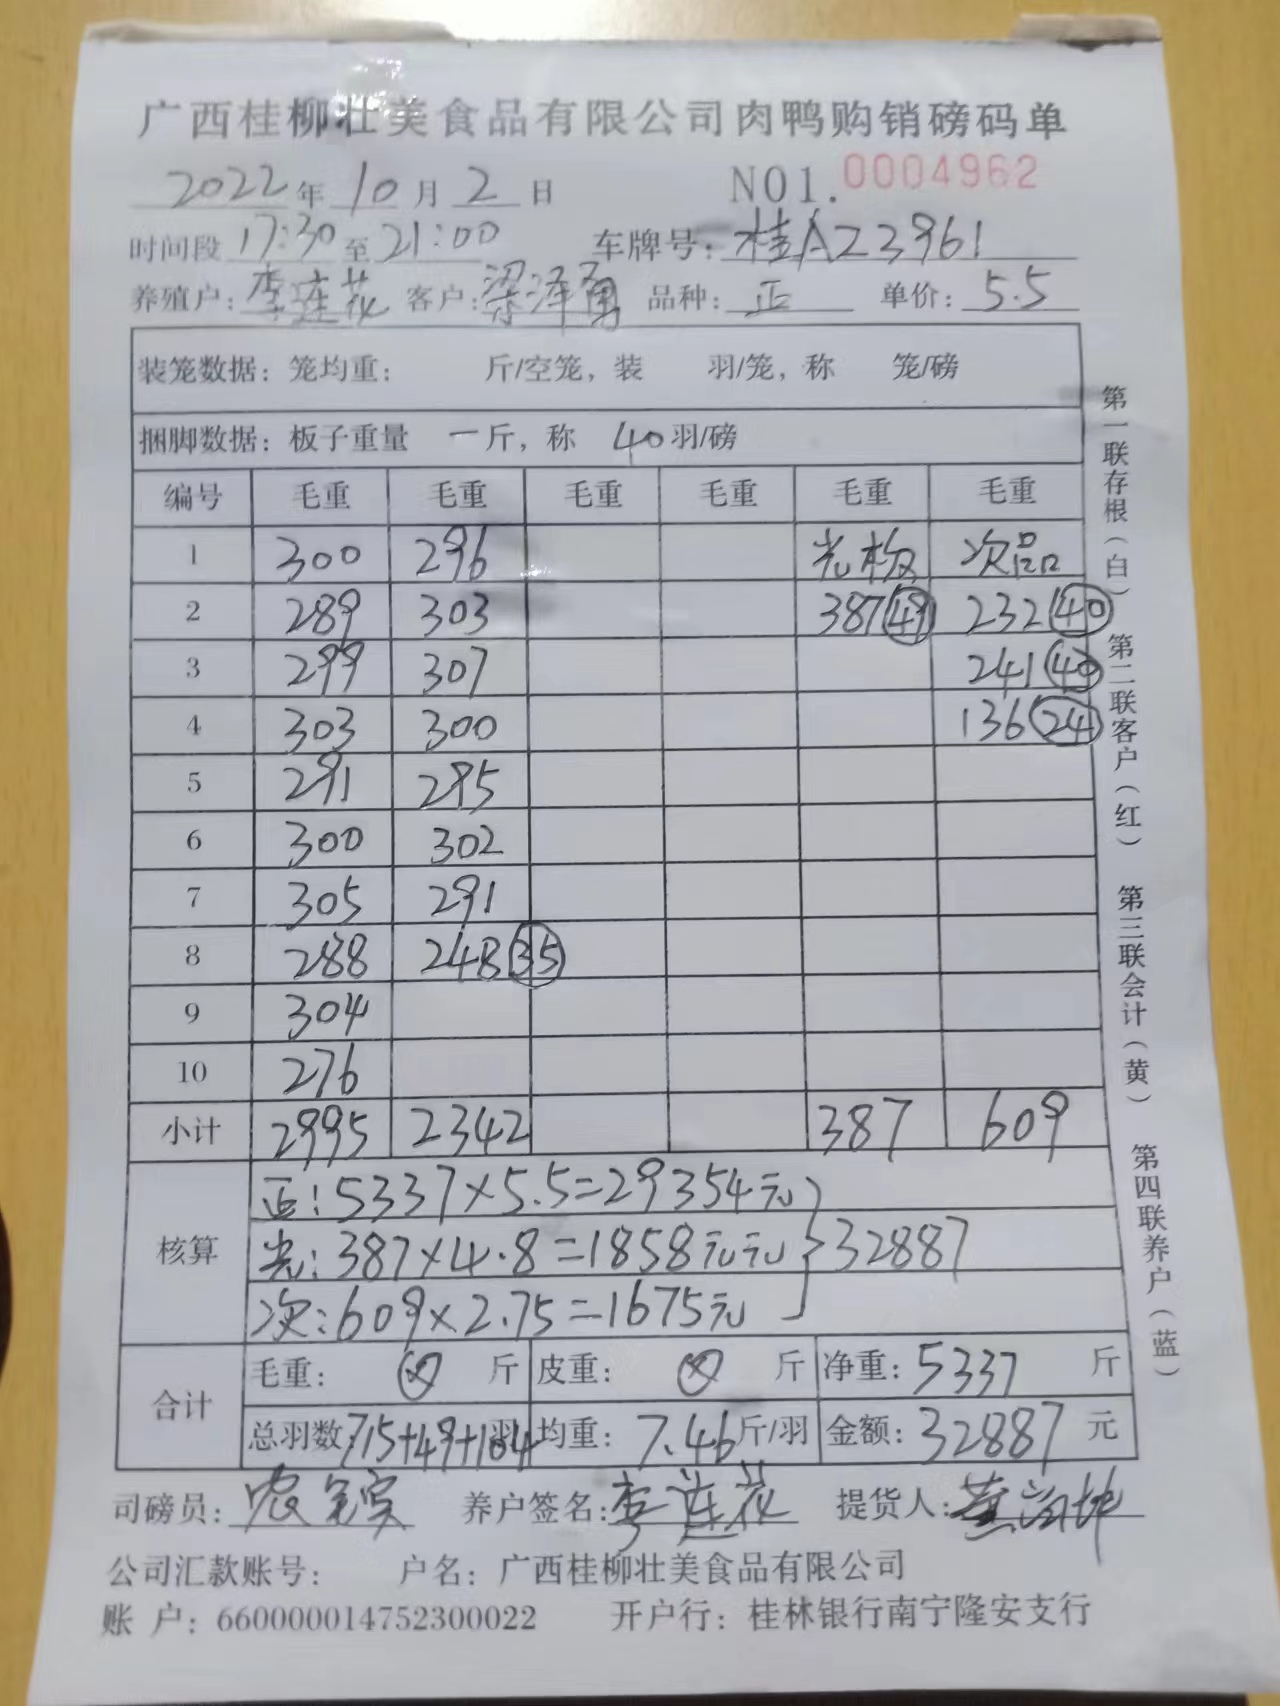 广西桂柳壮美食品有限公司肉鸭购销磅码单
2022年10月2日 NO1.0004962
时间段17:30至21:00 车牌号:桂AZ3961
养殖户:李莲花 客户:梁泽勇 品种:正 单价:5.5
装笼数据:笼均重: 斤/空笼,装 羽/笼,称 笼/磅
捆脚数据:板子重量 一斤,称 40羽/磅
编号 毛重 毛重 毛重 毛重 毛重 毛重
1 300 296 光板 次品
2 289 303 387(49) 232(40)
3 299 307 241(40)
4 303 300 136(24)
5 291 295
6 300 302
7 305 291
8 288 248(35)
9 304
10 276
小计 2995 2342 387 609
正:5337×5.5=29354元
核算 光:387×4.8=1858元元 }32887
次:609×2.75=1675元
毛重: ⊗ 斤 皮重: ⊗ 斤 净重:5337 斤
合计
总羽数715+49+104羽 均重:7.46斤/羽 金额:32887元
司磅员: 养户签名:李莲花 提货人:
公司汇款账号: 户名:广西桂柳壮美食品有限公司
账 户:660000014752300022 开户行:桂林银行南宁隆安支行
第一联存根(白) 第二联客户(红) 第三联会计(黄) 第四联养户(蓝)